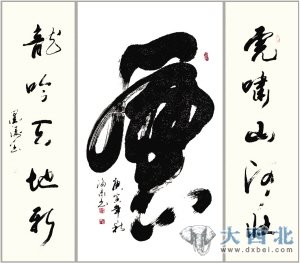 虎嘯山河壯
龍吟天地新
庚寅年秋
大西北
www.dxbei.com